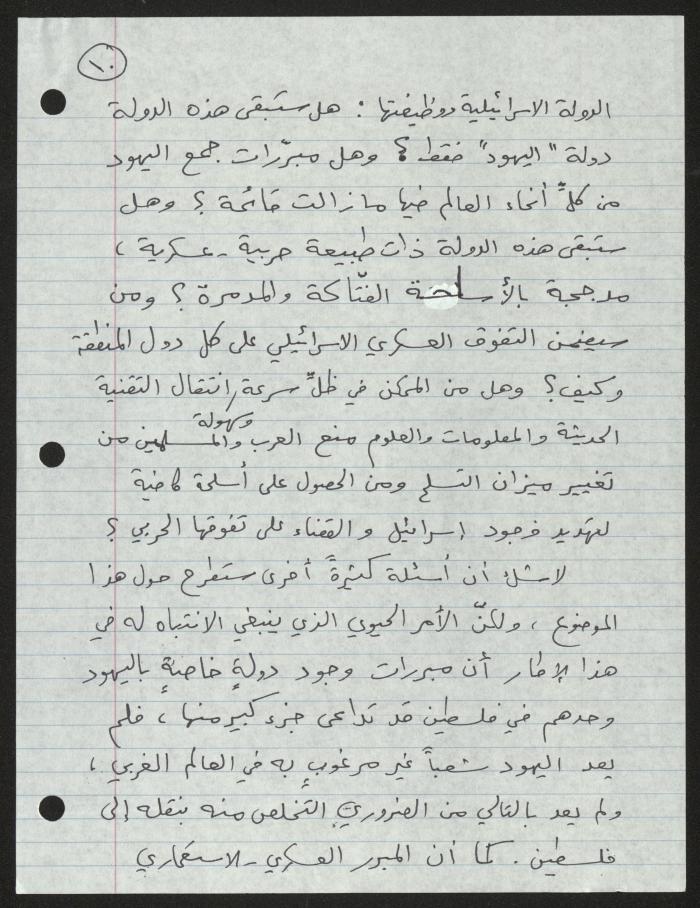 ١٠
الدولة الاسرائيلية ووظيفتها : هل ستبقى هذه الدولة
دولة "اليهود" فقط ؟ وهل مبرّرات جمع اليهود
من كلّ أنحاء العالم فيها ما زالت قائمة ؟ وهل
ستبقى هذه الدولة ذات طبيعة حربية - عسكرية ،
مدججة بالأسلحة الفتّاكة والمدمرة ؟ ومن
سيضمن التفوق العسكري الاسرائيلي على كل دول المنطقة
وكيف ؟ وهل من الممكن في ظلّ سرعة انتقال التقنية
وسهولة
الحديثة والمعلومات والعلوم منع العرب والمسلمين من
تغيير ميزان التسلح ومن الحصول على أسلحة كافية
لتهديد وجود إسرائيل والقضاء على تفوقها الحربي ؟
لا شك أن أسئلة كثيرةً أخرى ستطرح حول هذا
الموضوع ، ولكنّ الأمر الحيوي الذي ينبغي الانتباه له في
هذا الإطار أن مبررات وجود دولةٍ خاصةٍ باليهود
وحدهم في فلسطين قد تداعى جزء كبير منها ، فلم
يعد اليهود شعباً غير مرغوبٍ به في العالم الغربي ،
ولم يعد بالتالي من الضروري التخلص منه بنقله إلى
فلسطين . كما أن المبرر العسكري - الاستعماري